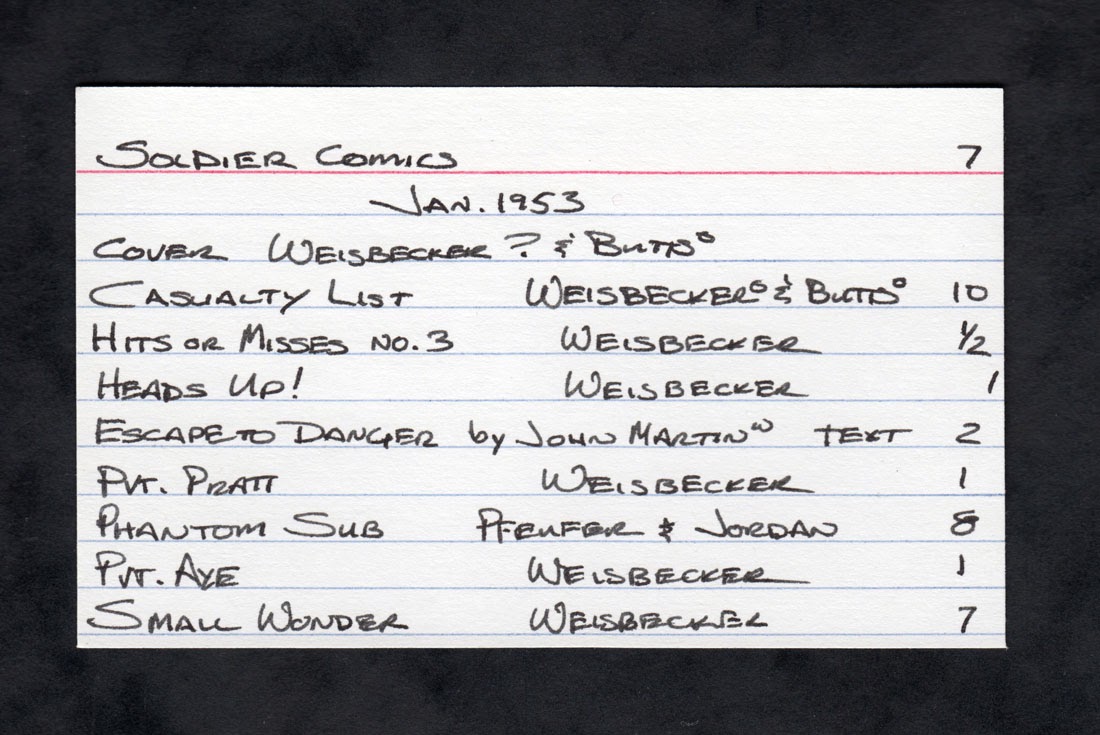 Soldier Comics 7
Jan. 1953
Cover Weisbecker ? & Butts°
Casualty List Weisbecker° & Butts° 10
Hits or Misses No. 3 Weisbecker 1/2
Heads Up! Weisbecker 1
Escape to Danger by John Martin ʷ text 2
Pvt. Pratt Weisbecker 1
Phantom Sub Pfeufer & Jordan 8
Pvt. Aye Weisbecker 1
Small Wonder Weisbecker 7